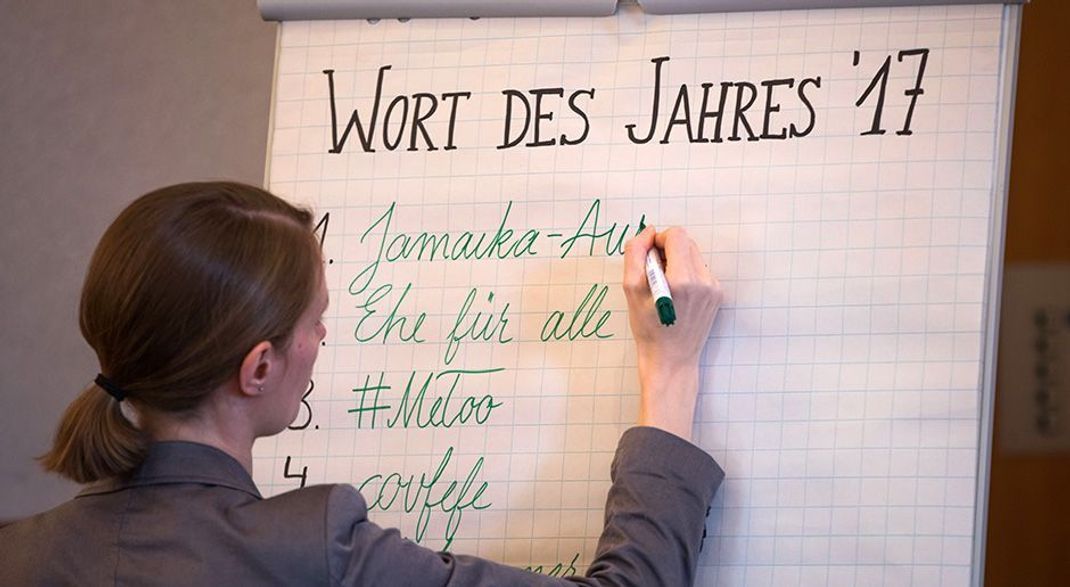 WORT DES JAHRES '17
1. Jamaika-Au
Ehe für alle
3. #MeToo
4. covfefe